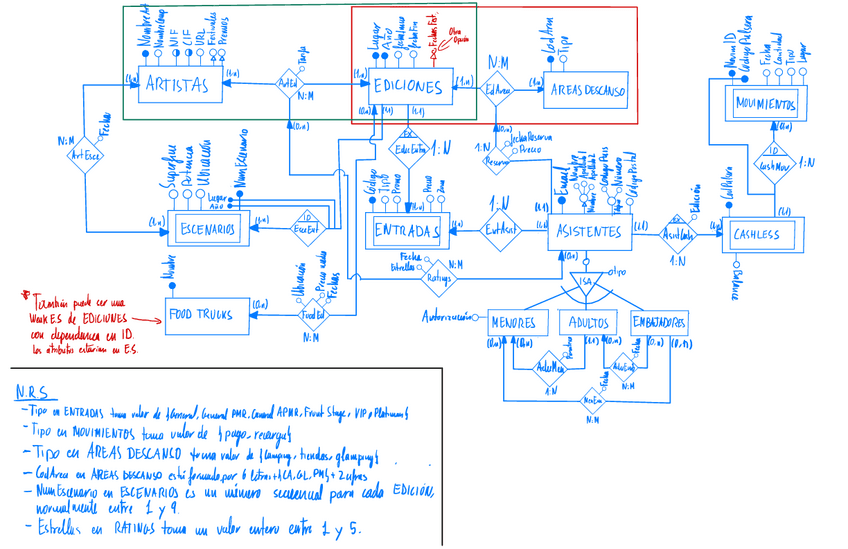 NombreArt
NombreComp
NIF
CIF
URL
Festivales
Premios
ARTISTAS
(1,n)
(1,n)
Tarifa
ArtEd
N:M
Lugar
Año
FechaInicio
FechaFin
Fechas Fest.
Otra
Opción
EDICIONES
(1,n)
(1,n)
(0,n)
(1,1)
(1,1)
N:M
EdArea
CodArea
Tipo
AREAS DESCANSO
(1,n)
(0,n)
MovimID
CodigoPulsera
Fecha
Cantidad
Tipo
Lugar
MOVIMIENTOS
(0,n)
ID
CashMov
1:N
N:M
Fecha
ArtEsce
(1,n)
Superficie
Potencia
Ubicación
Lugar
Año
NumEscenario
ESCENARIOS
(1,n)
ID
EX
1:N
Código
Tipo
Precio
Precio
Zona
ENTRADAS
(1,n)
1:N
EntAsist
Reserva
1:N
FechaReserva
Precio
Email
Nombre
Apellido1
Apellido2
Código País
Número
Código Postal
ASISTENTES
(1,1)
(1,1)
(0,n)
Edición
EX
1:N
CodPulsera
CASHLESS
(1,1)
Balance
Fecha
Estrellas
Ratings
N:M
Nombre
FOOD TRUCKS
(0,n)
Ubicación
Fechas
FoodEd
N:M
ISA
Autorización
MENORES
ADULTOS
EMBAJADORES
(0,n)
(0,n)
(1,1)
(0,n)
(0,n)
(0,1)
AduMen
1:N
Fecha
N:M
Fecha
MenEm
N:M
* También puede ser una
Weak E.S de EDICIONES
con dependencia en ID.
Los atributos estarían en E.S.
N.R.S
- Tipo en ENTRADAS toma valor de {General, General PMR, General APMR, Front Stage, VIP, Platinum}
- Tipo en MOVIMIENTOS toma valor de {pago, recarga}
- Tipo en AREAS DESCANSO toma valor de {Camping, tiendas, glamping}
- CodArea en AREAS DESCANSO está formado por 6 letras +
- NumEscenario en ESCENARIOS es un número secuencial para cada EDICIÓN,
normalmente entre 1 y 9.
- Estrellas en RATINGS toma un valor entero entre 1 y 5.